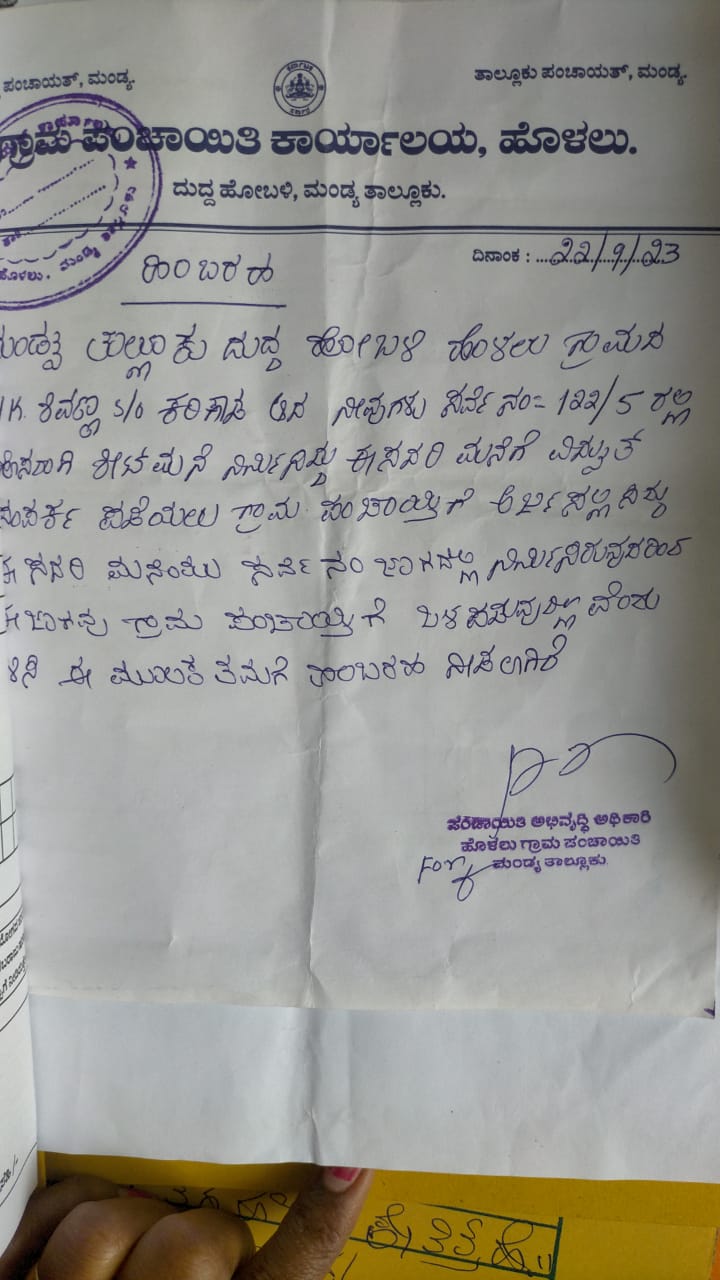 ಪಂಚಾಯತ್, ಮಂಡ್ಯ.
ತಾಲ್ಲೂಕು ಪಂಚಾಯತ್, ಮಂಡ್ಯ.
ಗ್ರಾಮ ಪಂಚಾಯಿತಿ ಕಾರ್ಯಾಲಯ, ಹೊಳಲು.
ದುದ್ದ ಹೋಬಳಿ, ಮಂಡ್ಯ ತಾಲ್ಲೂಕು.
ಹೊಳಲು. ಮಂಡ್ಯ
ದಿನಾಂಕ : 22/9/23
ಹಿಂಬರಹ
ಮಂಡ್ಯ ತಾಲ್ಲೂಕು ದುದ್ದ ಹೋಬಳಿ ಹೊಳಲು ಗ್ರಾಮದ
K. ಶಿವಣ್ಣ S/o ಕರಿಕಾಡ ಆದ ನೀವುಗಳು ಸರ್ವೆ ನಂ= 122/5 ರಲ್ಲಿ
ಶೀಟ್ ಮನೆ ನಿರ್ಮಿಸಿದ್ದು ಈ ಸದರಿ ಮನೆಗೆ ವಿದ್ಯುತ್
ಸಂಪರ್ಕ ಪಡೆಯಲು ಗ್ರಾಮ ಪಂಚಾಯ್ತಿಗೆ ಅರ್ಜಿ ಸಲ್ಲಿಸಿದ್ದು
ಈ ಸದರಿ ಮನೆಯು ಸರ್ವೆ ನಂ ಜಾಗದಲ್ಲಿ ನಿರ್ಮಿಸಿರುವುದರಿಂದ
ಈ ಜಾಗವು ಗ್ರಾಮ ಪಂಚಾಯ್ತಿಗೆ ಒಳಪಡುವುದಿಲ್ಲವೆಂದು
ಈ ಮೂಲಕ ತಮಗೆ ಹಿಂಬರಹ ನೀಡಲಾಗಿದೆ
ಪಂಚಾಯಿತಿ ಅಭಿವೃದ್ಧಿ ಅಧಿಕಾರಿ
ಹೊಳಲು ಗ್ರಾಮ ಪಂಚಾಯಿತಿ
For ಮಂಡ್ಯ ತಾಲ್ಲೂಕು.